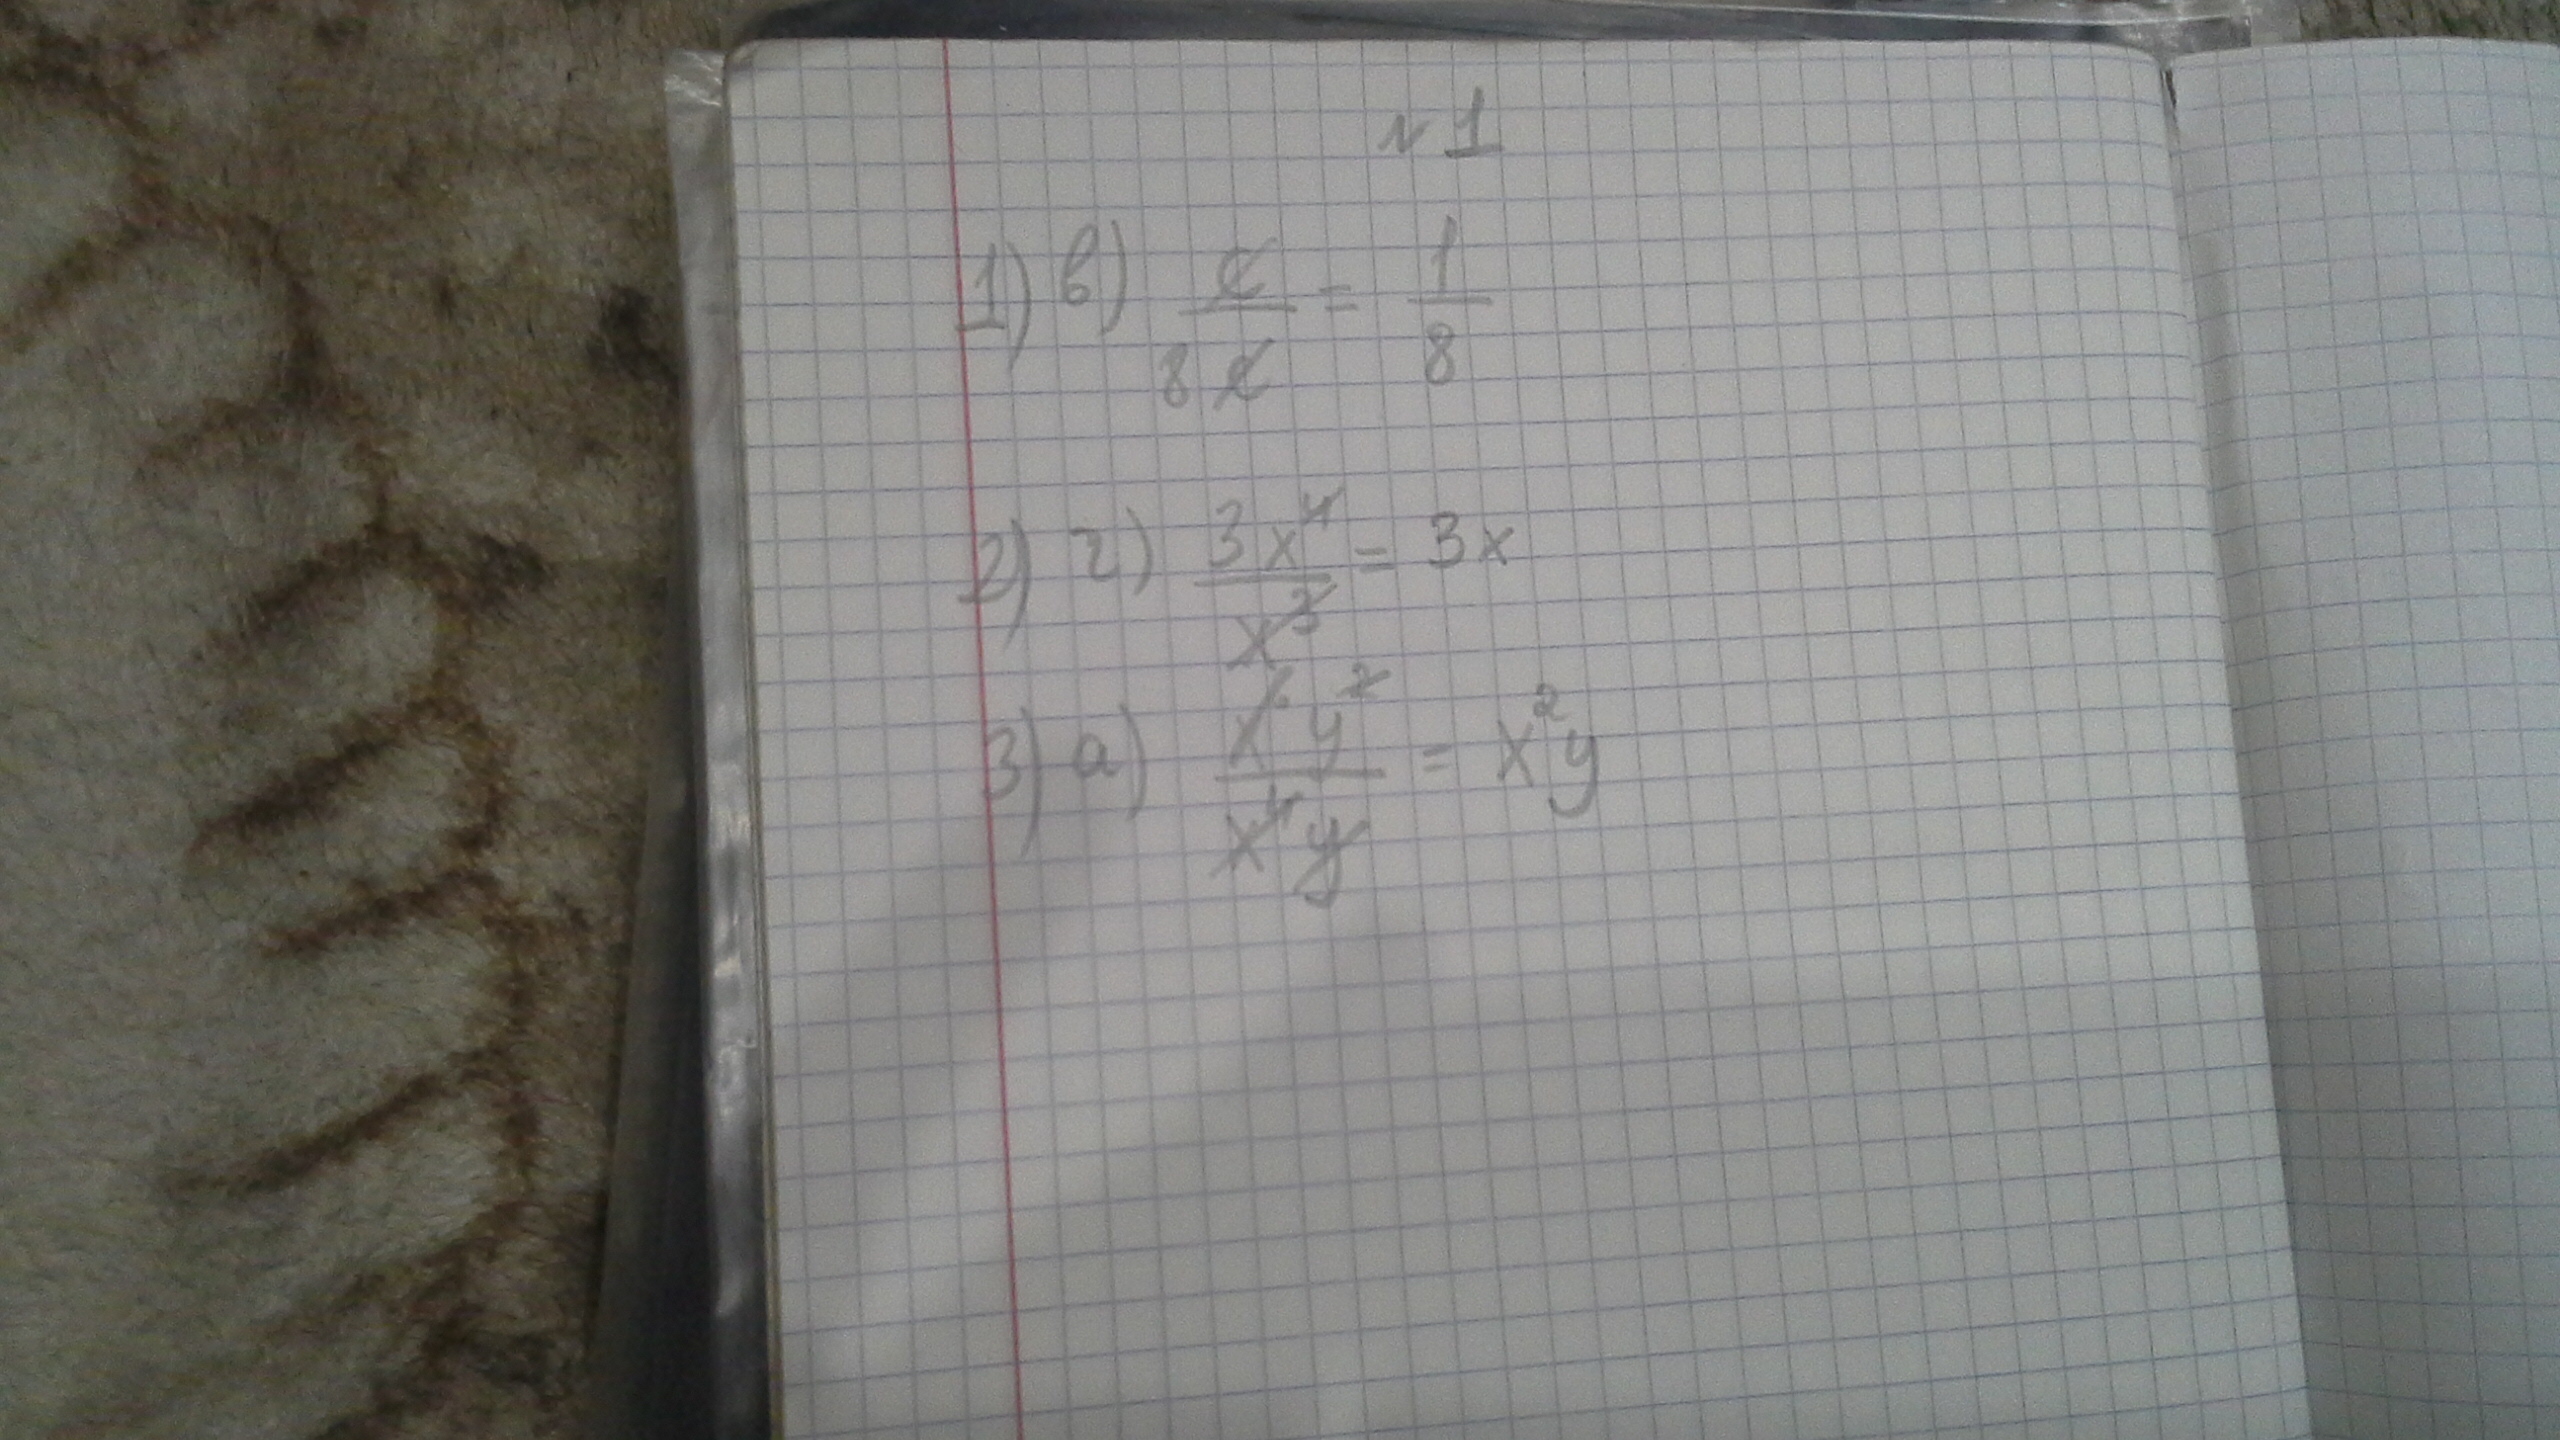 № 1
1) в) c/8c = 1/8
2) г) 3x⁴/x³ = 3x
3) а) x⁶y²/x⁴y = x²y